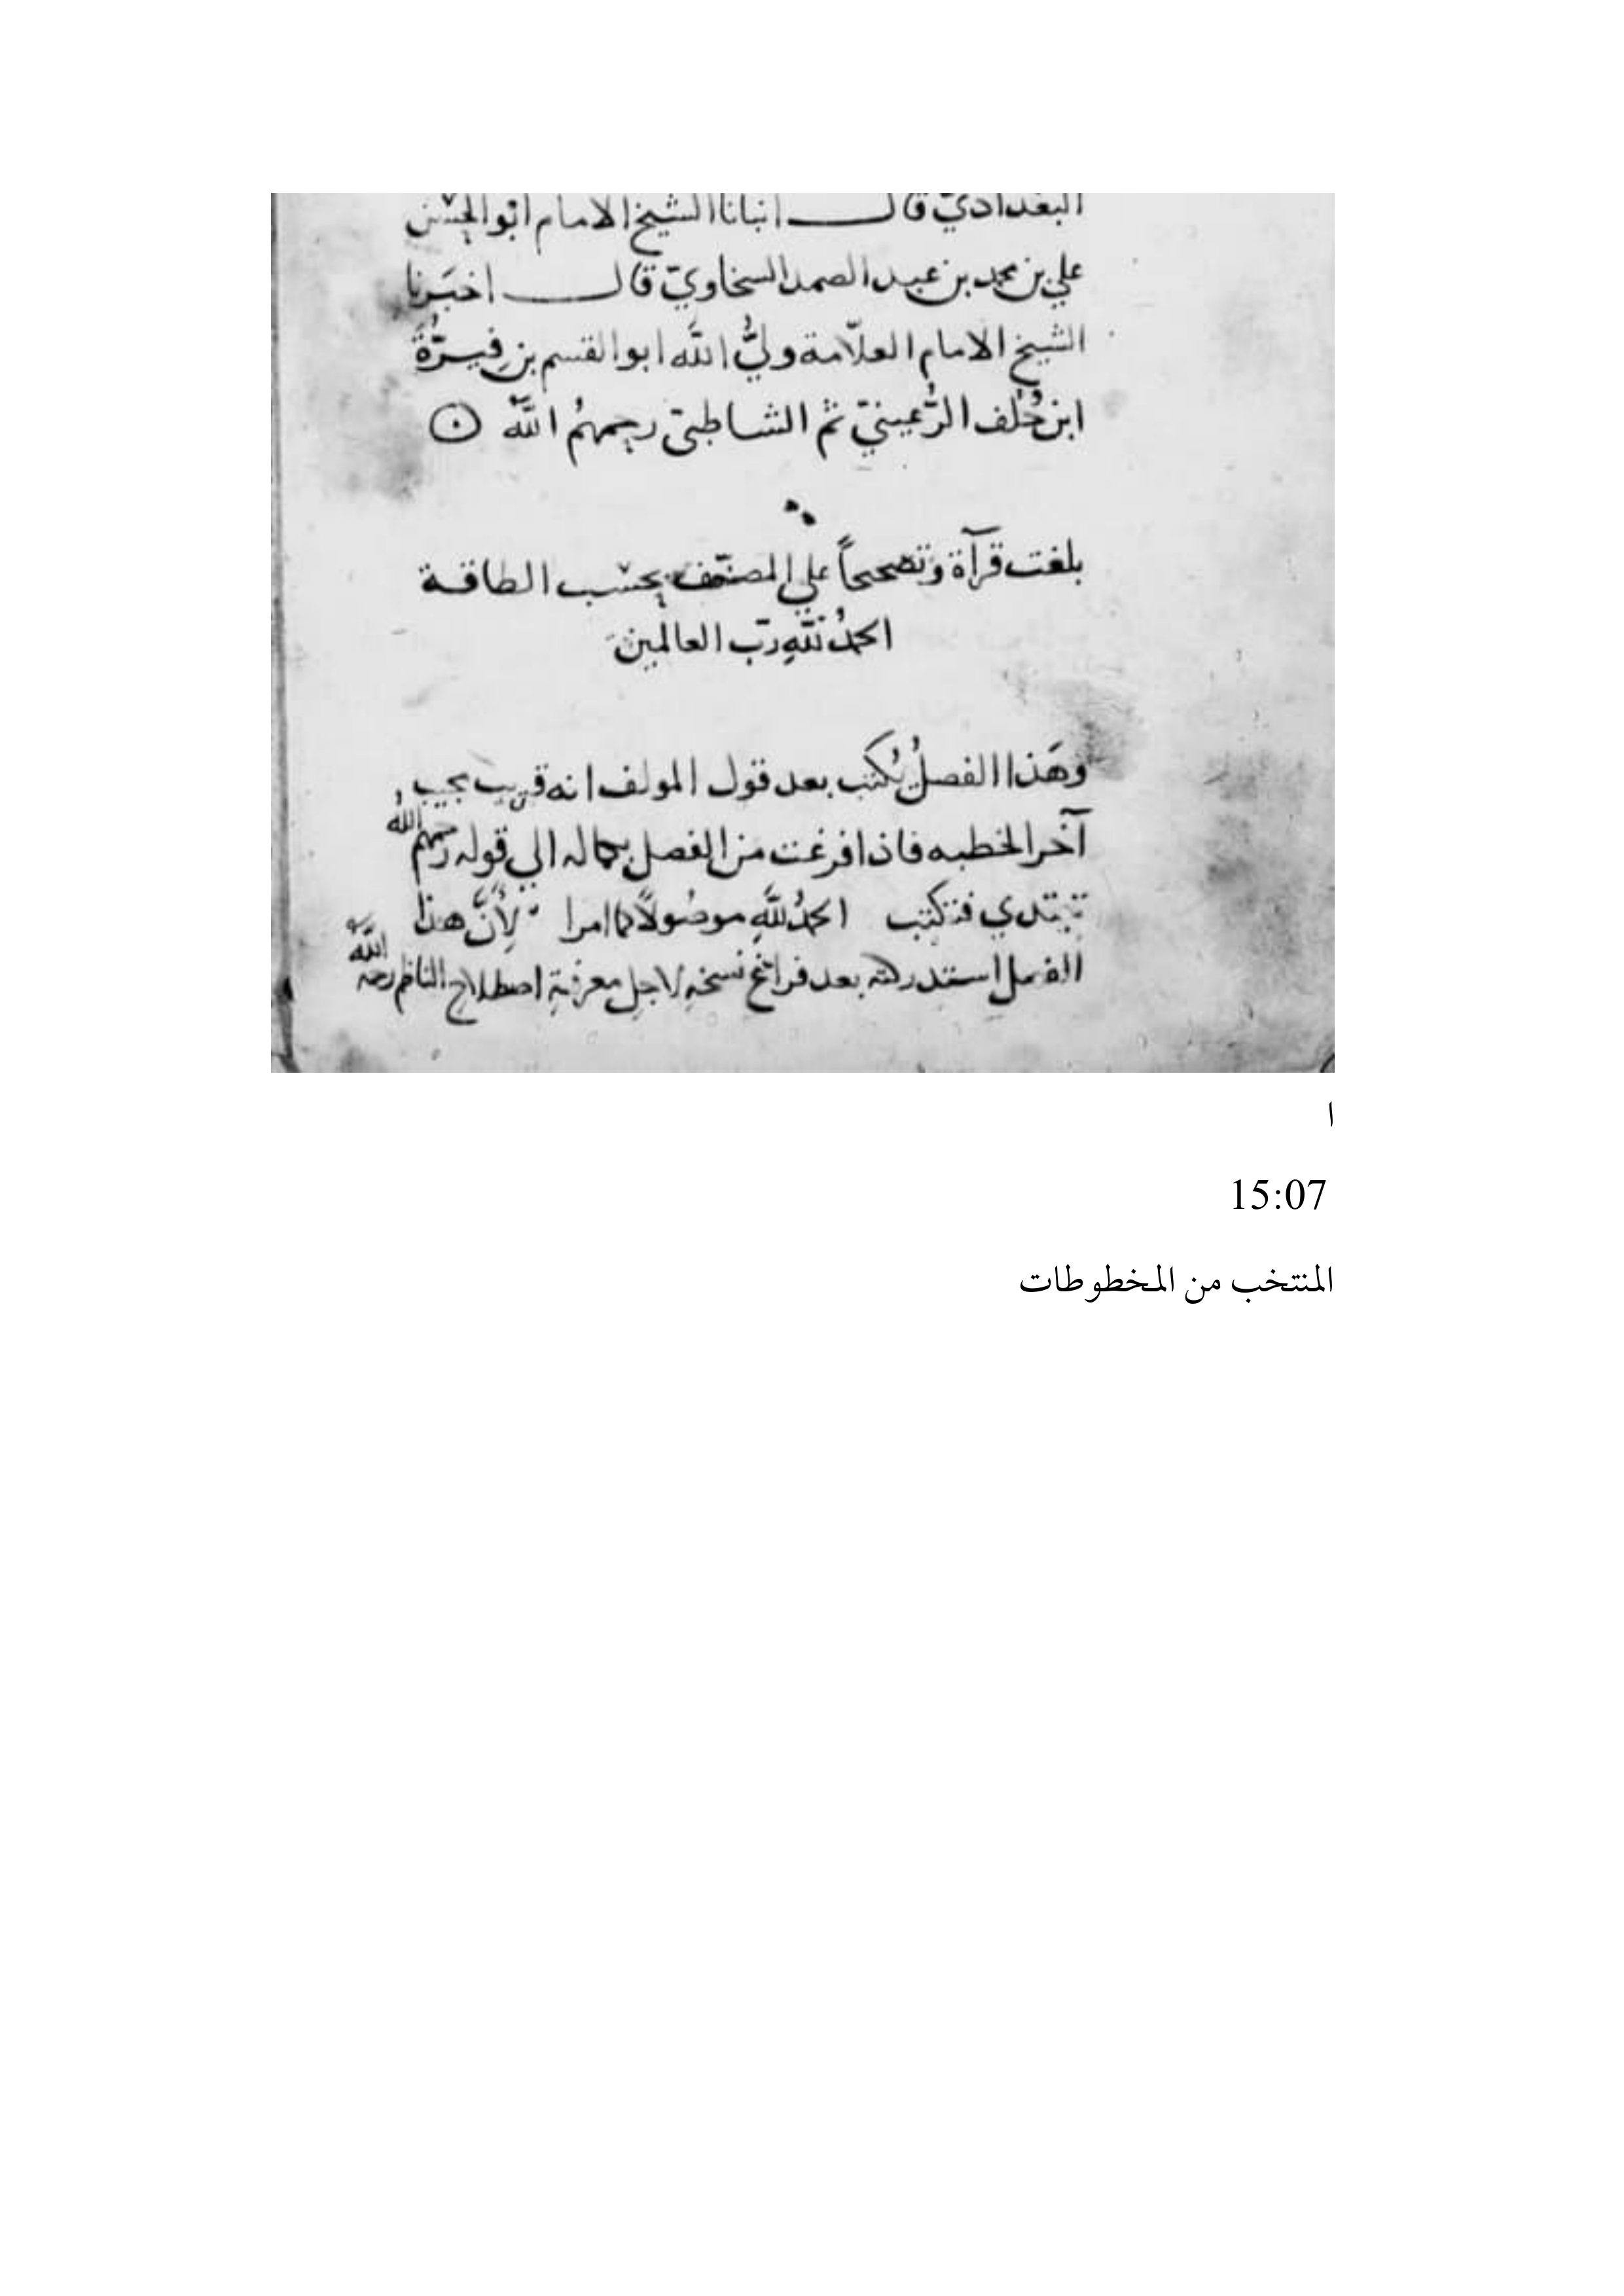 البغدادي قال انبانا الشيخ الامام ابو الحسن
علي بن محمد بن عبد الصمد السخاوي قال اخبرنا
الشيخ الامام العلّامة وليُّ الله ابو القسم بن فِيرُّة
ابن خَلَف الرُّعيني ثم الشاطبي رحمهمُ الله
بلغت قرآة وتصحيحاً على المصنّف بحسب الطاقة
الحمدُ للهِ ربّ العالمين
وهَذا الفصلُ يُكتب بعد قول المولف انه قريب مجيب
آخر الخطبه فاذا فرغت من الفصل بكماله الي قوله رحمهم اللهُ
تبتدي فتكتب الحمدُ للهِ موصُولاً كما امرا لِأنَّ هذا
الفصل استدركته بعد فراغ نسخهِ لاجل معرفةِ اصطلاح الناظم رحمه الله
ا
15:07
المنتخب من المخطوطات